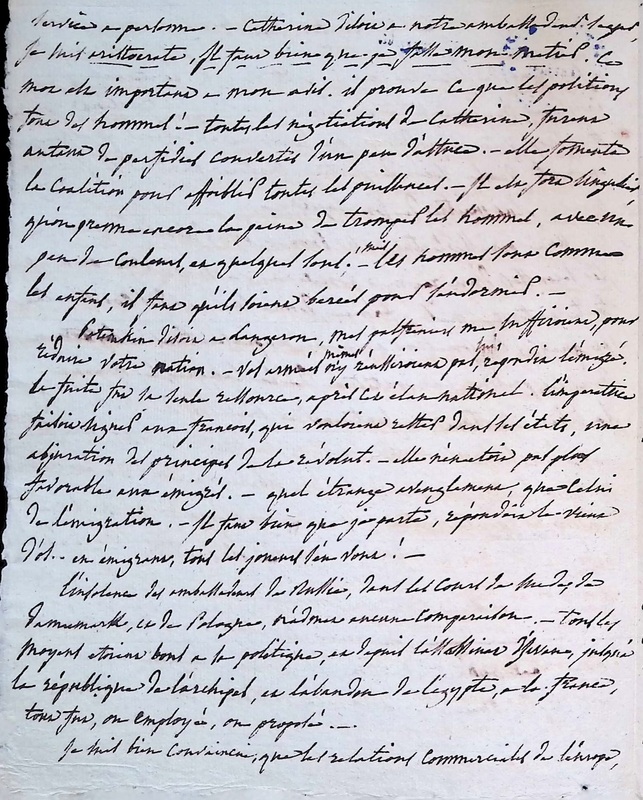 service a personne. – Catherine disoit a notre ambassadeur Segur,
je suis aristocrate, il faut bien que je fasse mon metier. Ce
mot est important a mon avis. il prouve ce que les politiques
font des hommes! – toutes les négotiations de Catherine, furent
autant de perfidies couvertes d'un peu d'astuce. – elle fomenta
la Coalition pour affoiblir toutes les puissances. – Il est fort singulier
qu'on prenne encore la peine de tromper les hommes, avec un
peu de couleurs, et quelques sons! – mais les hommes sont comme
les enfans, il faut qu'ils soient bercés pour s'endormir. –
Potemkin disoit a dangeron, mes palfreniers me suffiroient, pour
réduire votre nation. – Vos armées memes n'y réussiroient pas, lui répondit l'émigré.
la fuite fut sa seule ressource, après cet élan national. l'imperatrice
faisoit signer aux francois, qui vouloient rester dans ses états, une
abjuration des principes de la révolut. – elle n'en etoit pas plus
favorable aux émigrés. – quel étrange aveuglement, que celui
de l'émigration. – Il faut bien que je parte, répondoit le vieux
d'ol.. en émigrant, tous les joueurs s'en vont! –
l'insolence des ambassadeurs de Russie, dans les cours de Suede, de
Dannemark, et de Pologne, n'admet aucune comparaison. – tous les
moyens etoient bons a sa politique, et depuis l'assassinat d'Ywane, jusqu'à
la république de l'archipel, et l'abandon de l'egypte, a la france,
tout fut, ou employé, ou proposé –.
Je suis bien convaincu, que les relations commerciales de l'europe,